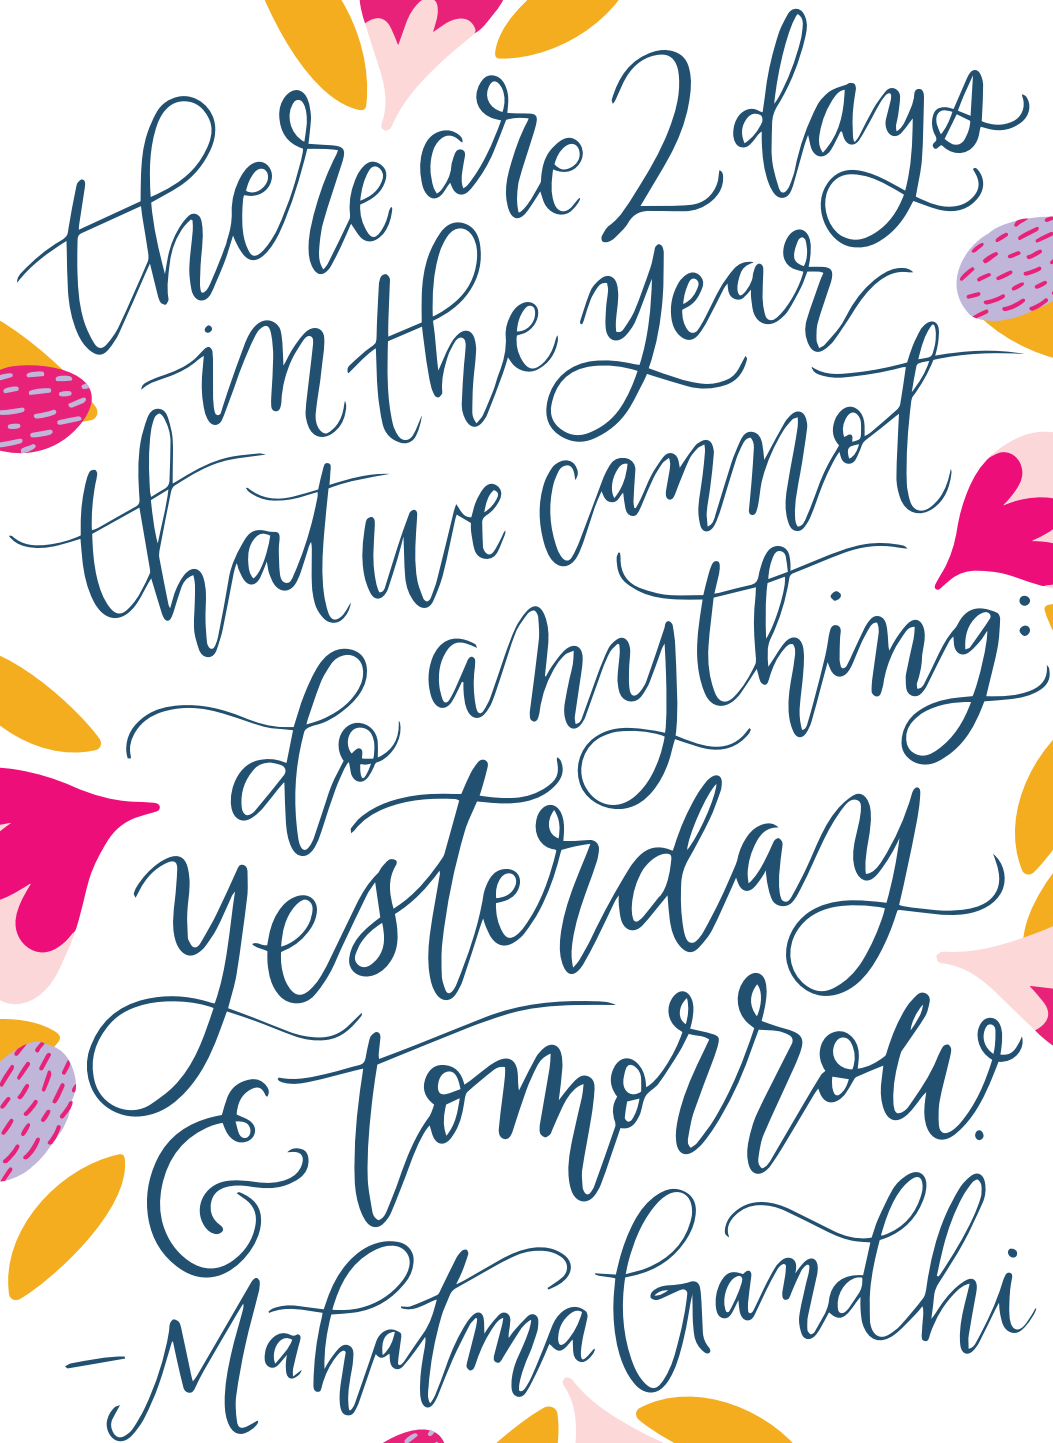 there are 2 days
in the year
that we cannot
do anything:
yesterday
& tomorrow.
- Mahatma Gandhi